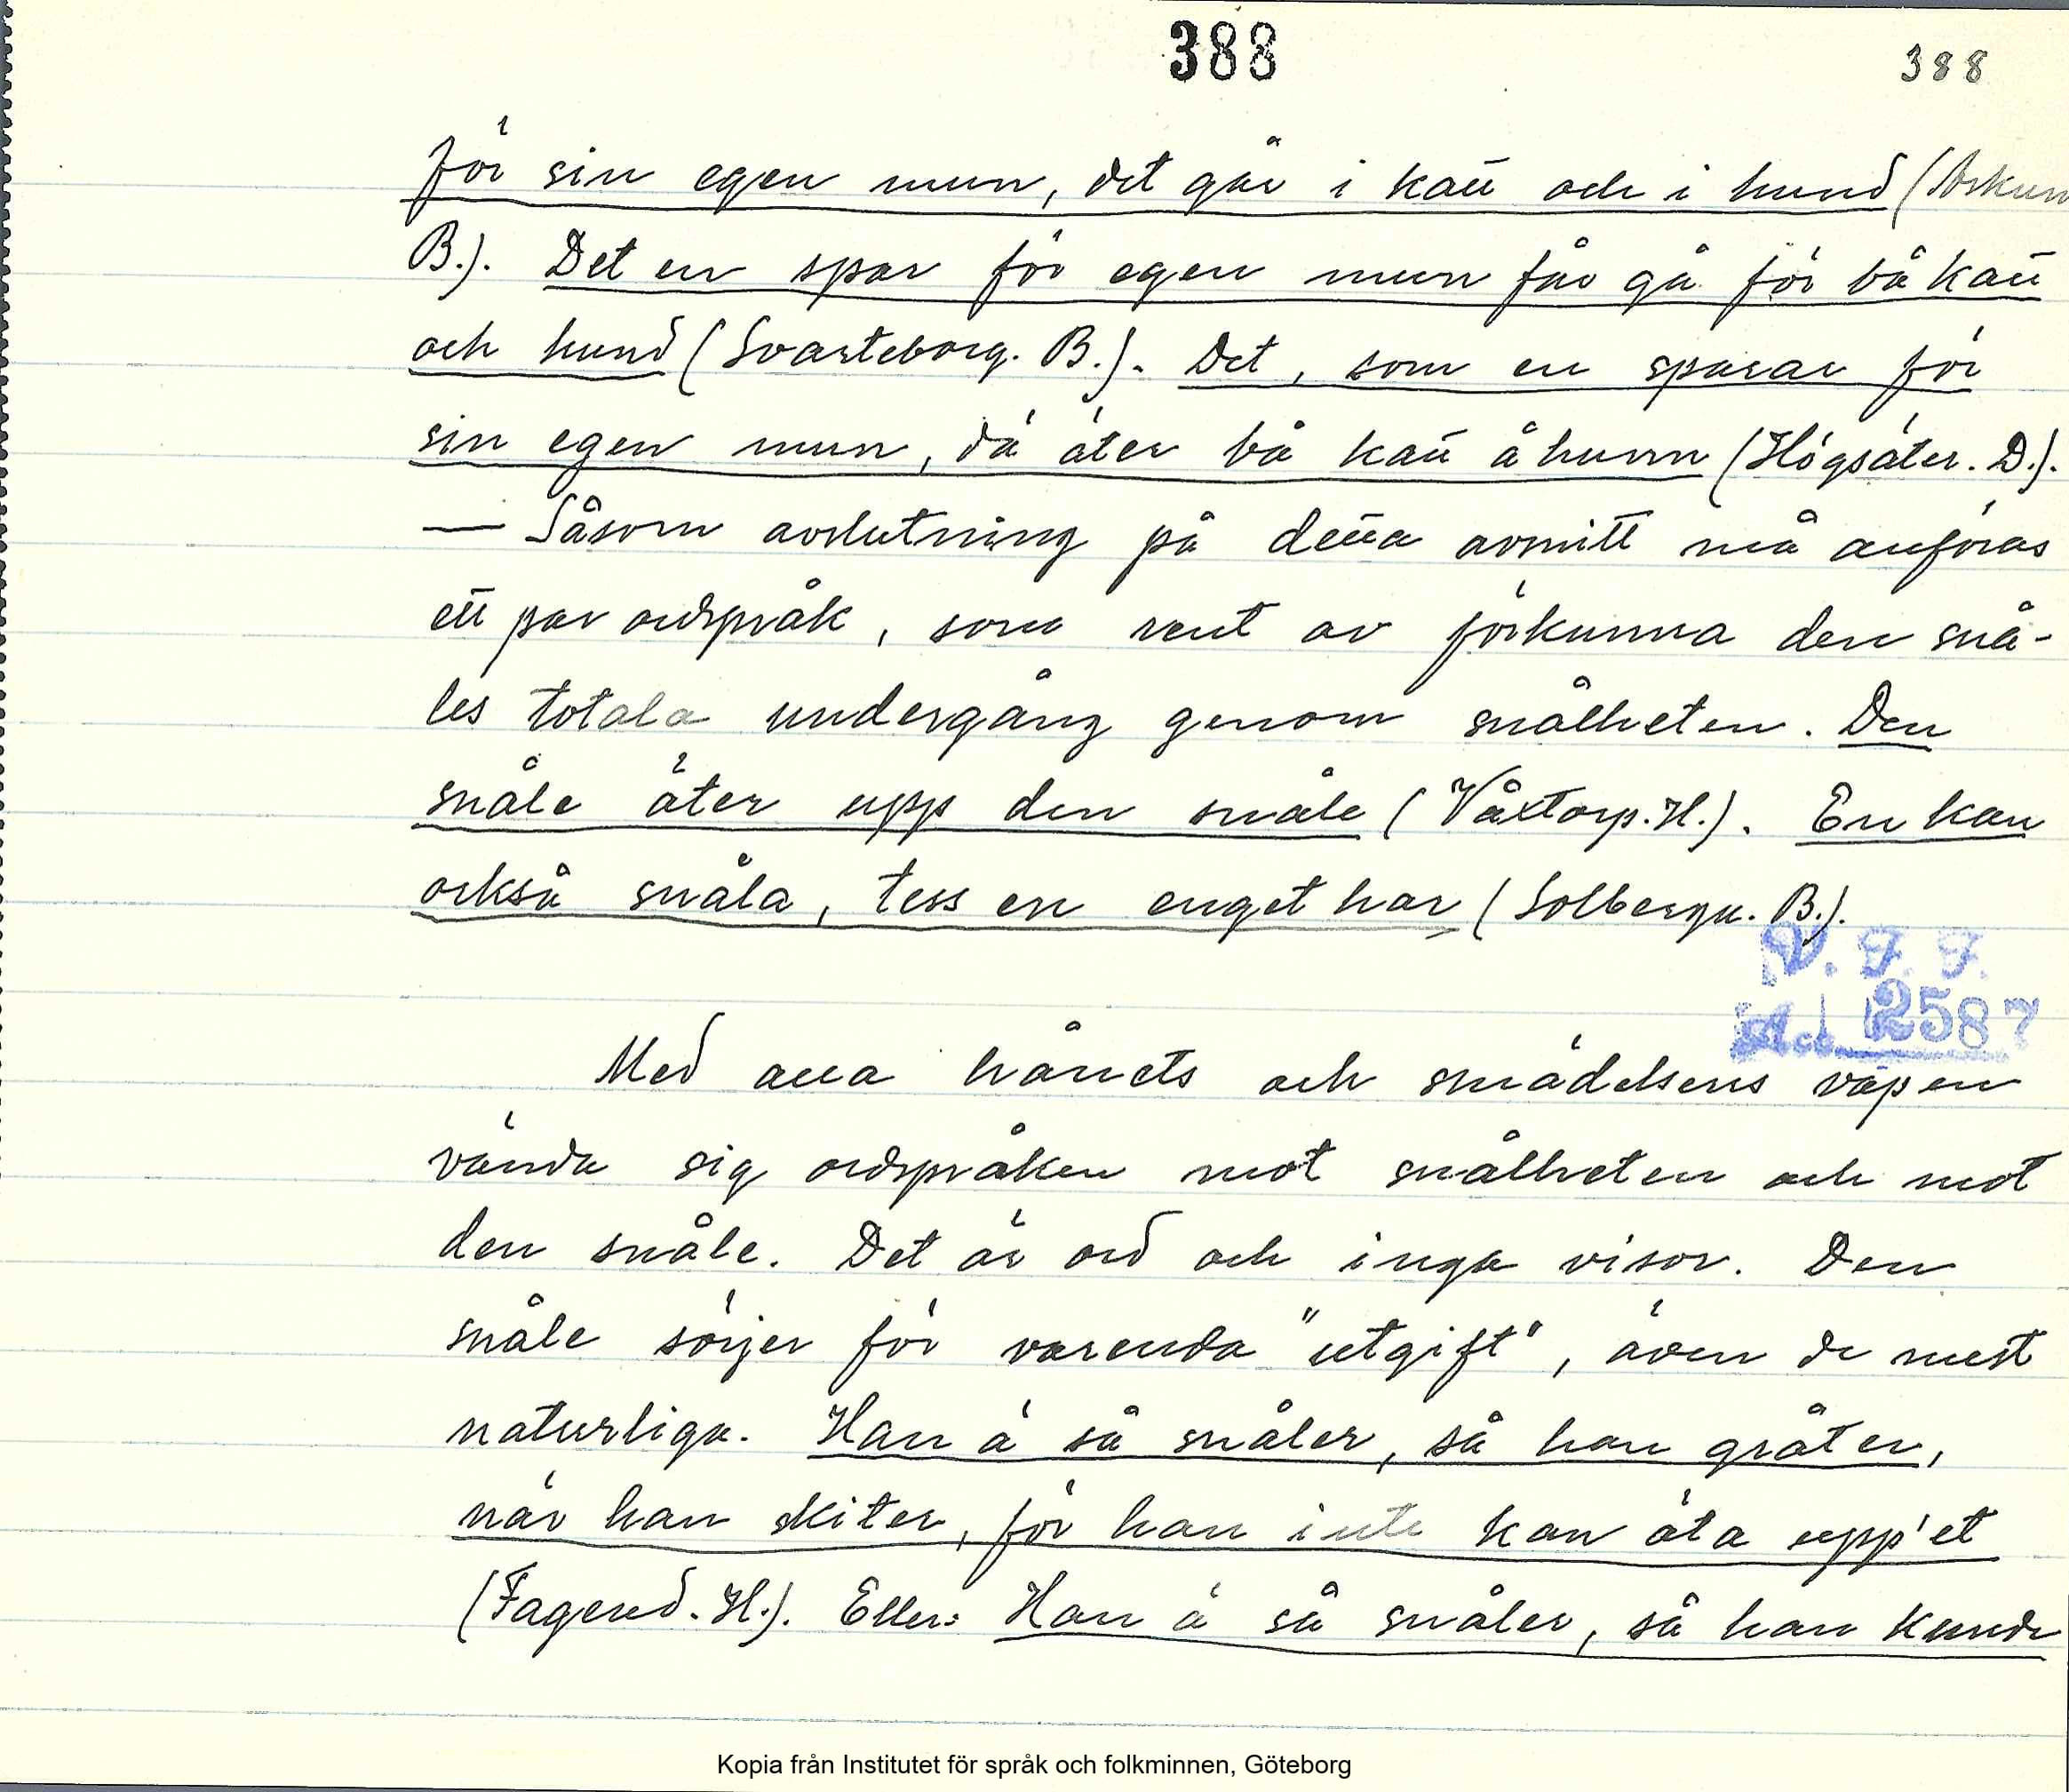 388
388
för sin egen mun, det går i katt och i hund (Askum
B.). Det en spar för egen mun får gå för bå katt
och hund (Svarteborg. B.). Det, som en sparar för
sin egen mun, dä äter bå katt å hunn (Högsäter. D.).
— Såsom avslutning på detta avsnitt må anföras
ett par ordspråk, som rent av förkunna den snå-
les totala undergång genom snålheten. Den
snåle äter upp den snåle (Våxtorp. H.). En kan
också snåla, tess en enget har (Solberga. B.).
V. F. F.
Acc. 2587
Med alla hånets och smädelsens vapen
vända sig ordspråken mot snålheten och mot
den snåle. Det är ord och inga visor. Den
snåle sörjer för varenda "utgift", även de mest
naturliga. Han ä så snåler, så han gråter,
när han skiter, för han inte kan äta upp'et
(Fagered. H.). Eller: Han ä så snåler, så han kunde
Kopia från Institutet för språk och folkminnen, Göteborg